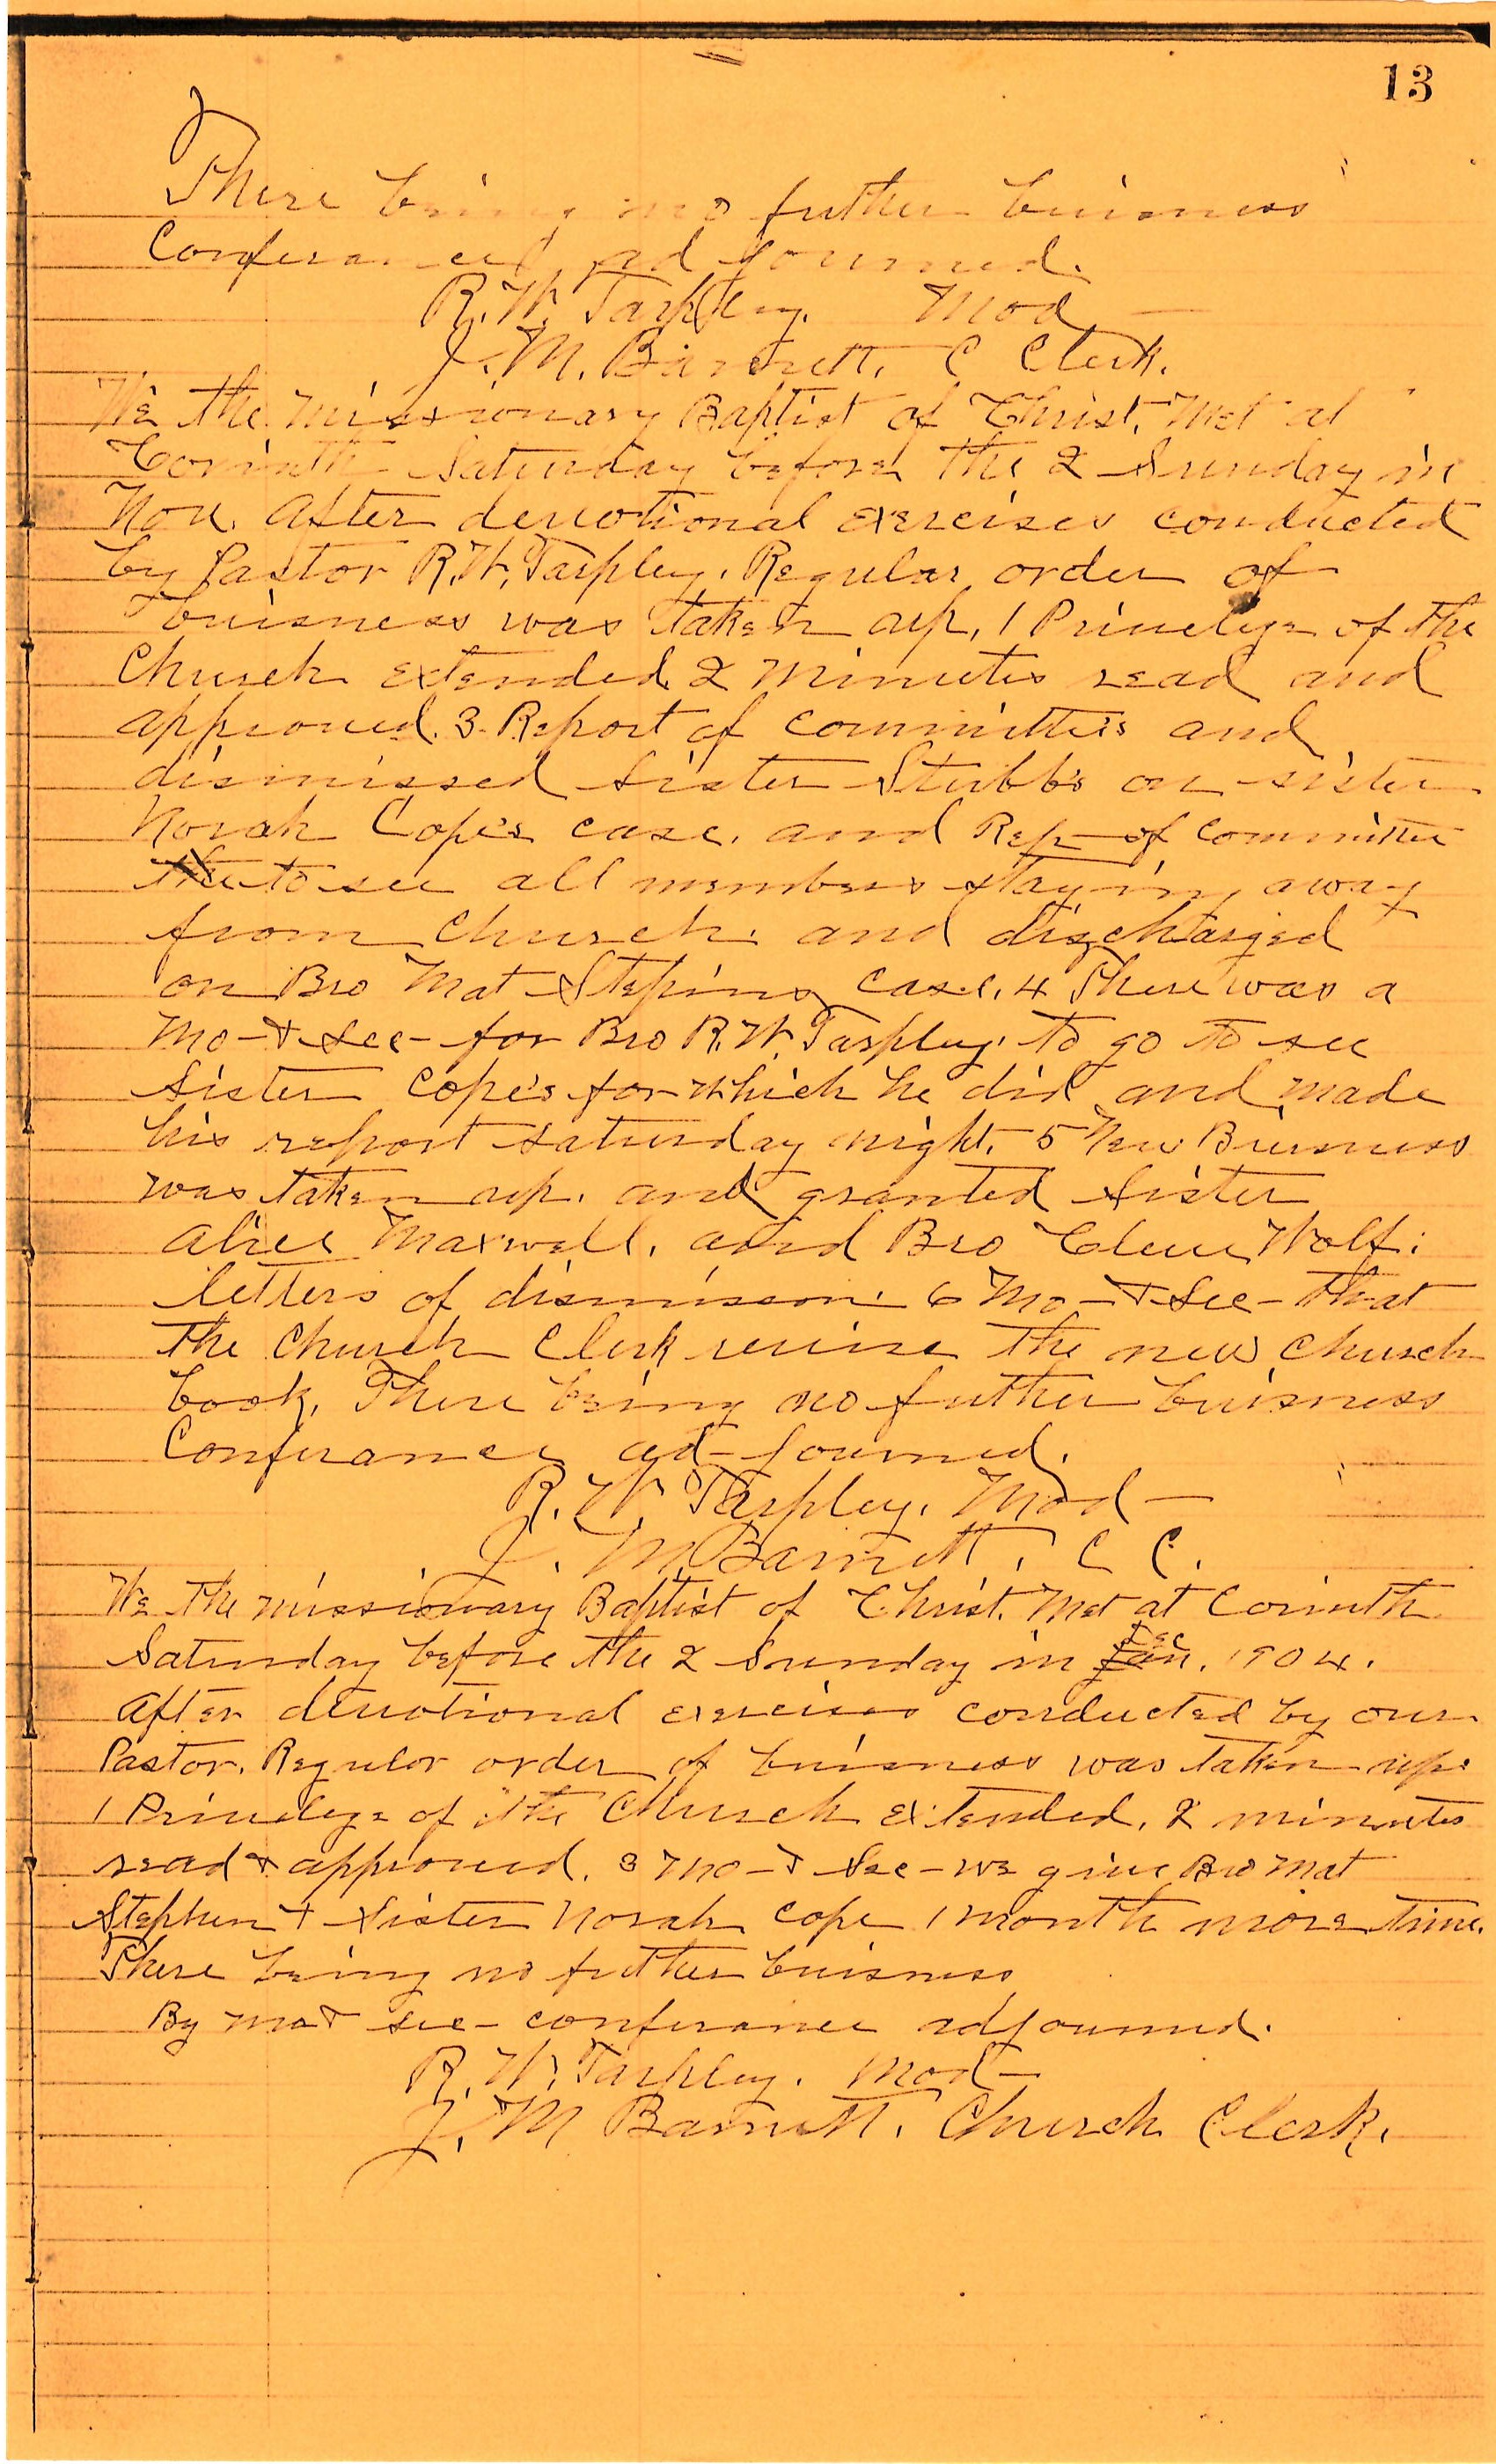 13
There being no futher buisness
Conferance ad journed.
R. W. Tarpley. Mod
J. M. Barnett, C Clerk.
We the Missionary Baptist of Christ. Met at
Corinth Saturday before the 2 Sunday in
Nov. After devotional exercises conducted
by Pastor R. W. Tarpley. Regular order of
buisness was taken up. 1 Privelige of the
Church extended 2 minutes read and
approved. 3. Report of committees and
dismissed Sister Stubbs on sister
Norah Cope's case. and Rep of Committee
to see all members staying away
from Church. and discharged
on Bro Mat Stepins case. 4 There was a
Mo-& Sec- for Bro R. W. Tarpley. to go to see
Sister Cope's for which he did and made
his report saturday night. 5 New Buisness
was taken up. and granted Sister
Alice Maxwell. and Bro Cleve Wolf.
letters of dismission. 6 Mo-& Sec- that
the Church Clerk revise the new Church
book. There being no futher buisness
Conferance ad-journed.
R. W. Tarpley. Mod-
J. M. Barnett, C C.
We the missionary Baptist of Christ. Met at Corinth
Dec
Saturday before the 2 Sunday in Jan. 1904.
After devotional exercises conducted by our
Pastor. Regular order of buisness was taken up.
1 Privelige of the Church extended. 2 minutes
read & approved. 3 Mo-& Sec- we give Bro Mat
Stephen & Sister Norah Cope 1 month more time.
There being no futher buisness
By mo & sec- conferance adjourned.
R. W. Tarpley. Mod-
J. M Barnett. Church Clerk.